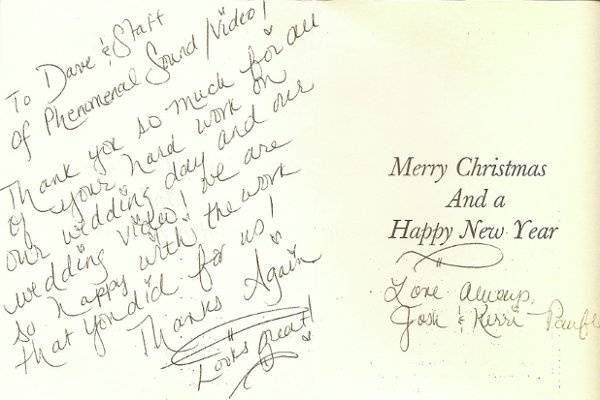 To Dave & Staff
of Phenomenal Sound/Video!
Thank you so much for all
of your hard work on
our wedding day and our
wedding video! We are
so happy with the work
that you did for us!
Thanks Again
Looks Great!
Merry Christmas
And a
Happy New Year
Love always,
Josh & Kerri